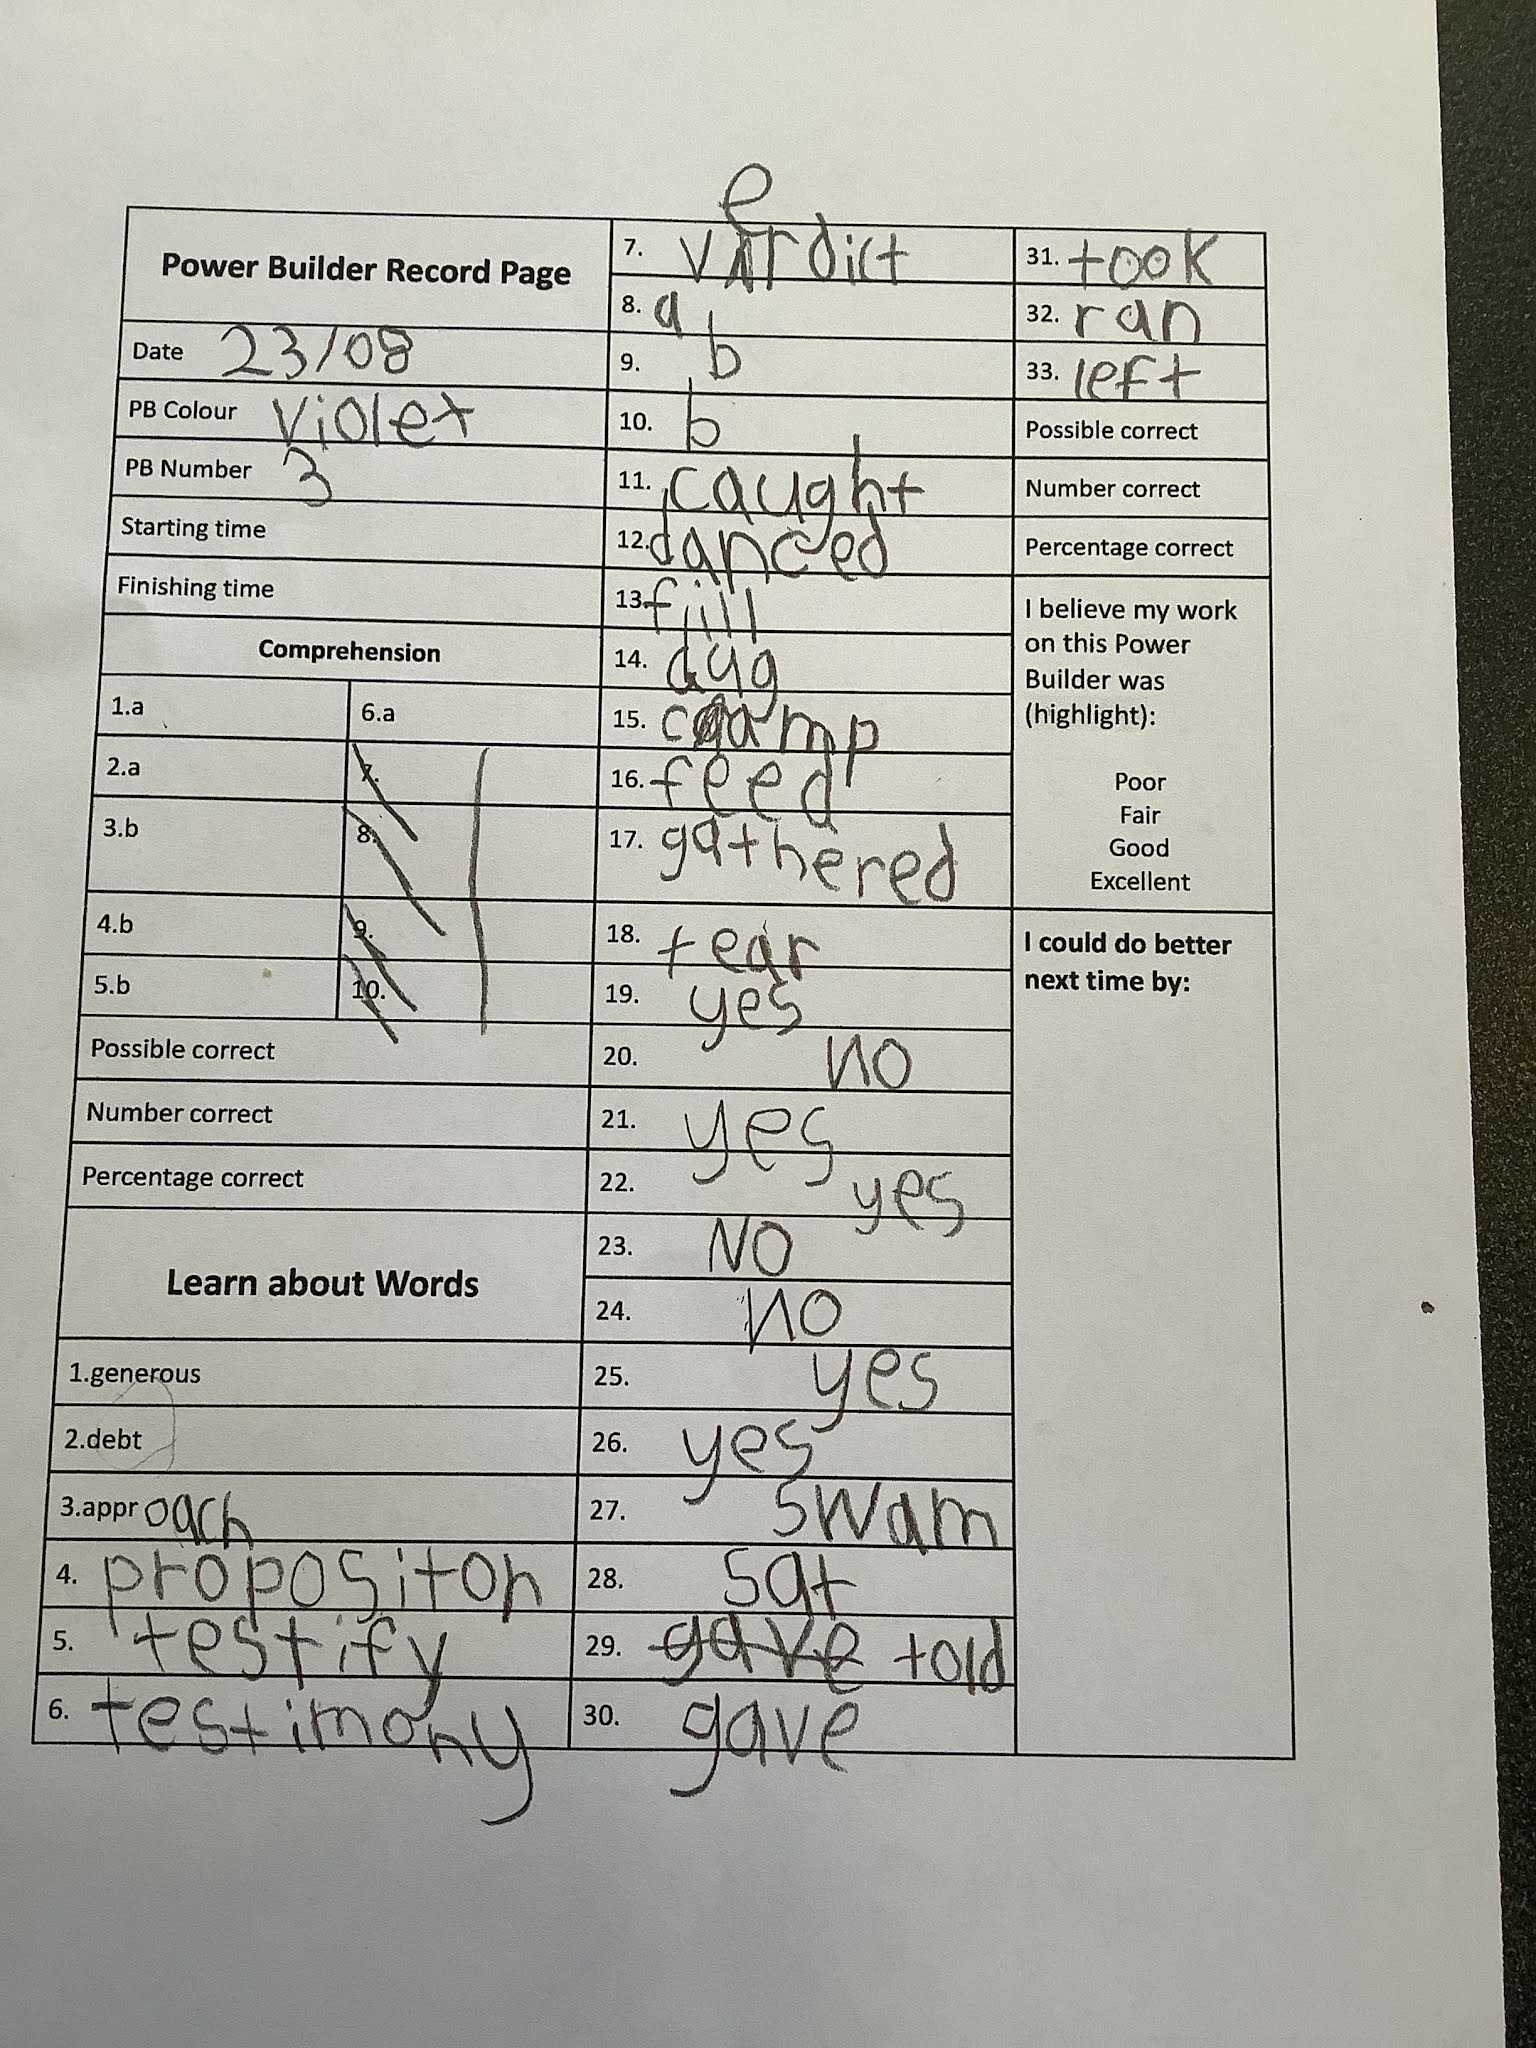 Power Builder Record Page
Date 23/08
PB Colour Violet
PB Number 3
Starting time
Finishing time
Comprehension
1.a 6.a
2.a 7.
3.b 8.
4.b 9.
5.b 10.
Possible correct
Number correct
Percentage correct
Learn about Words
1.generous
2.debt
3.approach
4. propositon
5. testify
6. testimony
7. verdict
8. a
9. b
10. b
11. caught
12. danced
13. fill
14. dug
15. camp
16. feed
17. gathered
18. tear
19. yes
20. no
21. yes
22. yes
23. NO
24. no
25. yes
26. yes
27. swam
28. sat
29. gave told
30. gave
31. took
32. ran
33. left
Possible correct
Number correct
Percentage correct
I believe my work
on this Power
Builder was
(highlight):
Poor
Fair
Good
Excellent
I could do better
next time by: